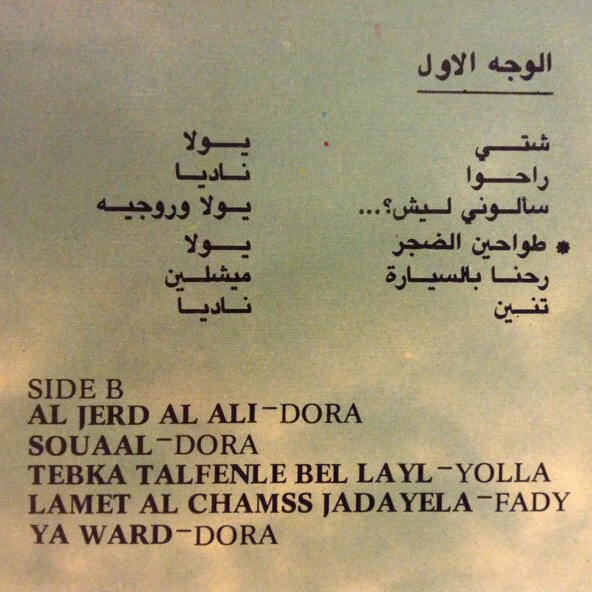 الوجه الاول
شتـــي يـــولا
راحـــوا نـــاديـا
سألــوني لـيش؟... يـولا وروجيـه
* طواحين الضجر يـــولا
رحنـا بالسيـارة ميشلـين
تنـــين نـــاديـا
SIDE B
AL JERD AL ALI–DORA
SOUAAL–DORA
TEBKA TALFENLE BEL LAYL–YOLLA
LAMET AL CHAMSS JADAYELA–FADY
YA WARD–DORA